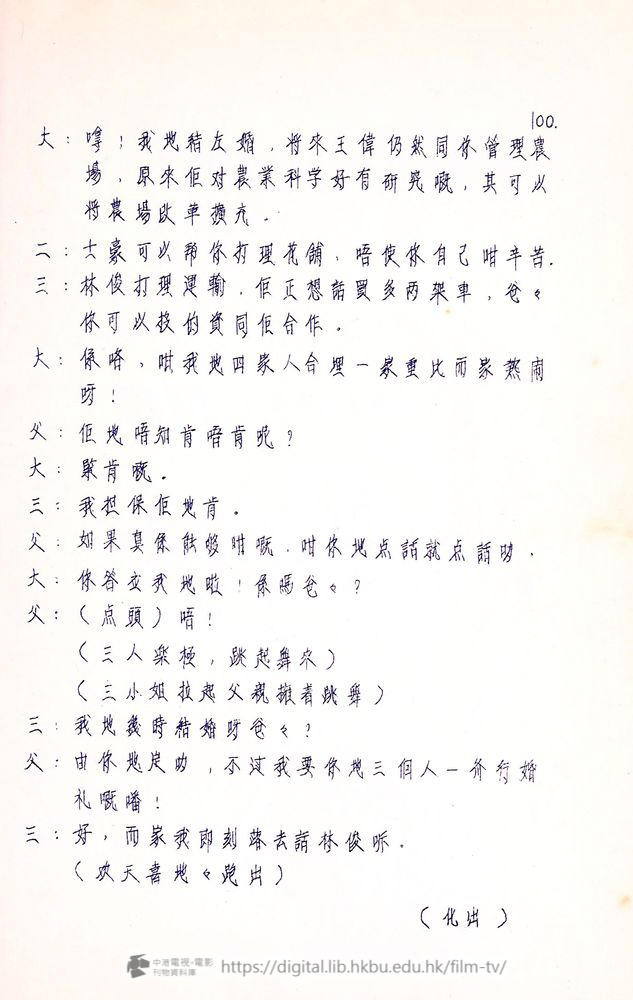 100.
大：嗱！我地結左婚，將來王偉仍然同你管理農
場，原來佢对農業科学好有研究嘅，其可以
將農場改革擴充。
二：士豪可以帮你打理花舖，唔使你自己咁辛苦.
三：林俊打理運輸，佢正想話買多两架車，爸々
你可以投的資同佢合作。
大：係咯，咁我地四家人合埋一家重比而家熱鬧
呀！
父：佢地唔知肯唔肯呢？
大：緊肯嘅。
三：我担保佢地肯。
父：如果真係能够咁嘅，咁你地点話就点話叻，
大：你答应我地啦！係嗎爸々？
父：（点頭）唔！
（三人樂極，跳起舞來）
（三小姐拉起父親擁着跳舞）
三：我地幾時結婚呀爸々？
父：由你地定叻，不过我要你地三個人一齐行婚
礼嘅噃！
三：好，而家我即刻落去請林俊听。
（欢天喜地々跑出）
（化出）
中港電視·電影
刊物資料庫
https://digital.lib.hkbu.edu.hk/film-tv/